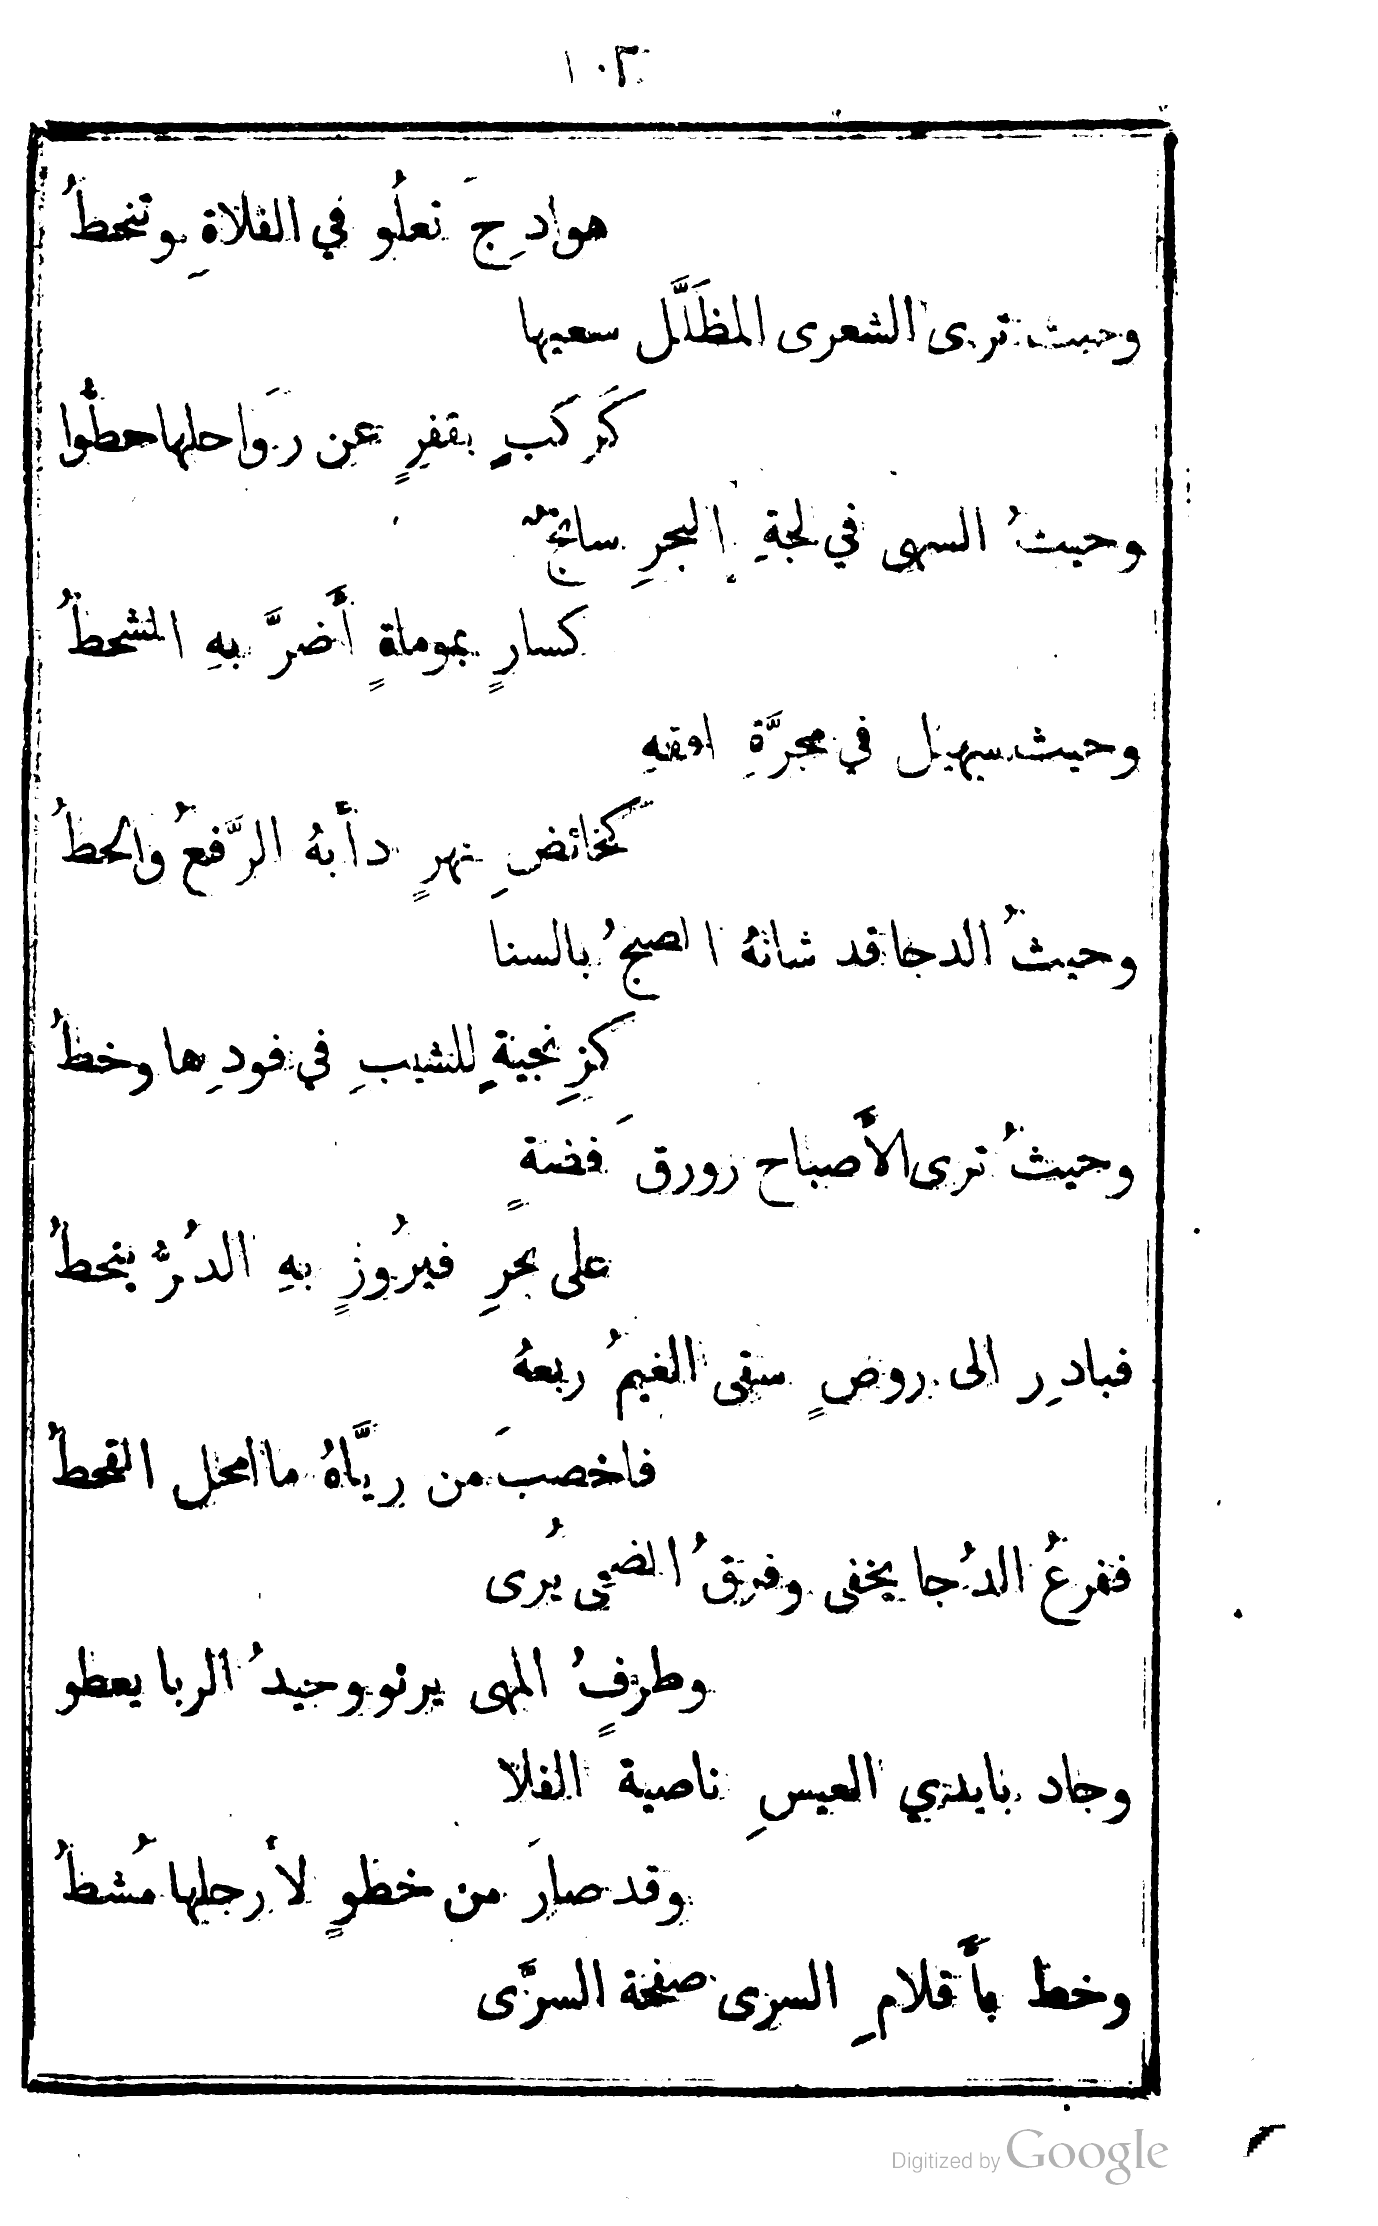 ١٠٣
هوادِجَ تعلُو في الفلاةِ وتنحطُ
وحيث ترى الشعرى المظَلَّل سعيها
كَركَبٍ بقفرٍ عن رَواحلها حطُّوا
وحيثُ السهى في لجةِ البحرِ سابحٌ
كسارٍ بموماةٍ أَضرَّ بهِ الشحطُ
وحيث سهيل في مجرَّةِ افقهِ
كخائضِ نهرٍ دأبهُ الرَّفعُ والحطُ
وحيثُ الدجا قد شانهُ الصبحُ بالسنا
كزِنجيةٍ للشيبِ في فودِها وخطُ
وحيثُ ترى الأَصباح زورقَ فضةٍ
على بحرِ فيرُوزٍ بهِ الدُرُّ ينحطُ
فبادِر الى روضٍ سقى الغيمُ ربعهُ
فاخصبَ من ريَّاهُ ما امحل القحطُ
ففرعُ الدُجا يخفى وفرقُ الضحى يُرى
وطرفٍُ المهى يرنو وجيدُ الربا يعطو
وجاد بايدي العيسِ ناصية الفلا
وقد صارَ من خطوٍ لأرجلها مُشطُ
وخط بأَقلامِ السرى صفحة السرَّى
Digitized by Google